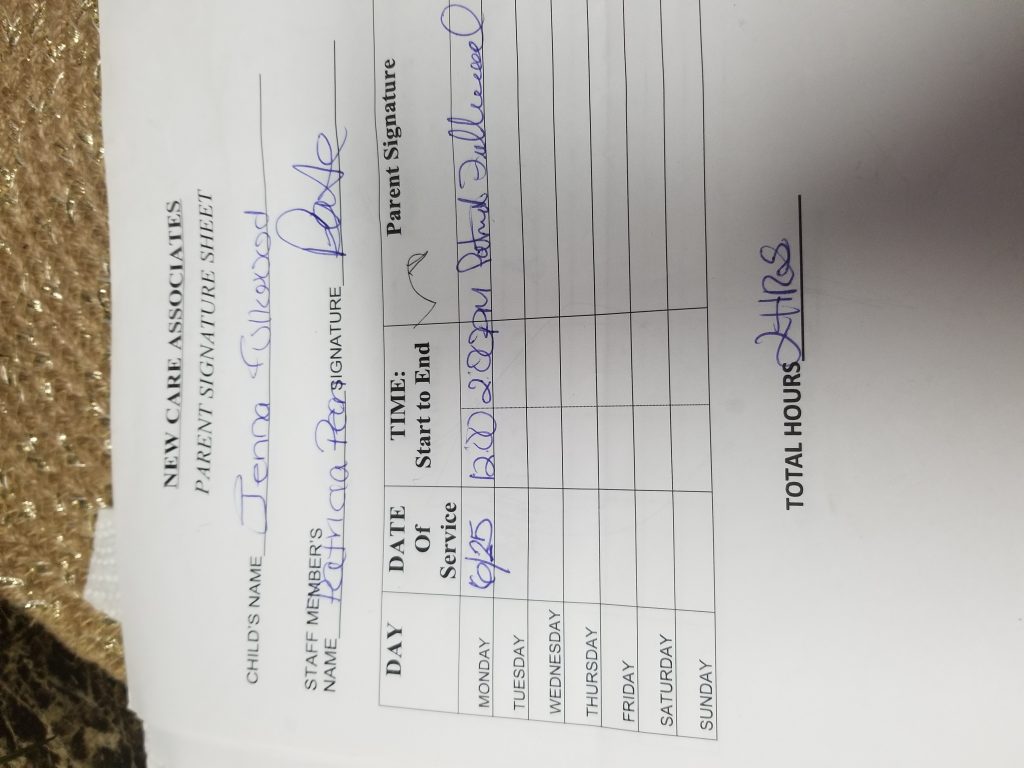 NEW CARE ASSOCIATES
PARENT SIGNATURE SHEET
CHILD'S NAME Jenna Fullwood
STAFF MEMBER'S
NAME Patricia SIGNATURE
DAY DATE Of Service TIME: Start to End Parent Signature
MONDAY 6/25 12:00 2:00PM
TUESDAY
WEDNESDAY
THURSDAY
FRIDAY
SATURDAY
SUNDAY
TOTAL HOURS 2HRS